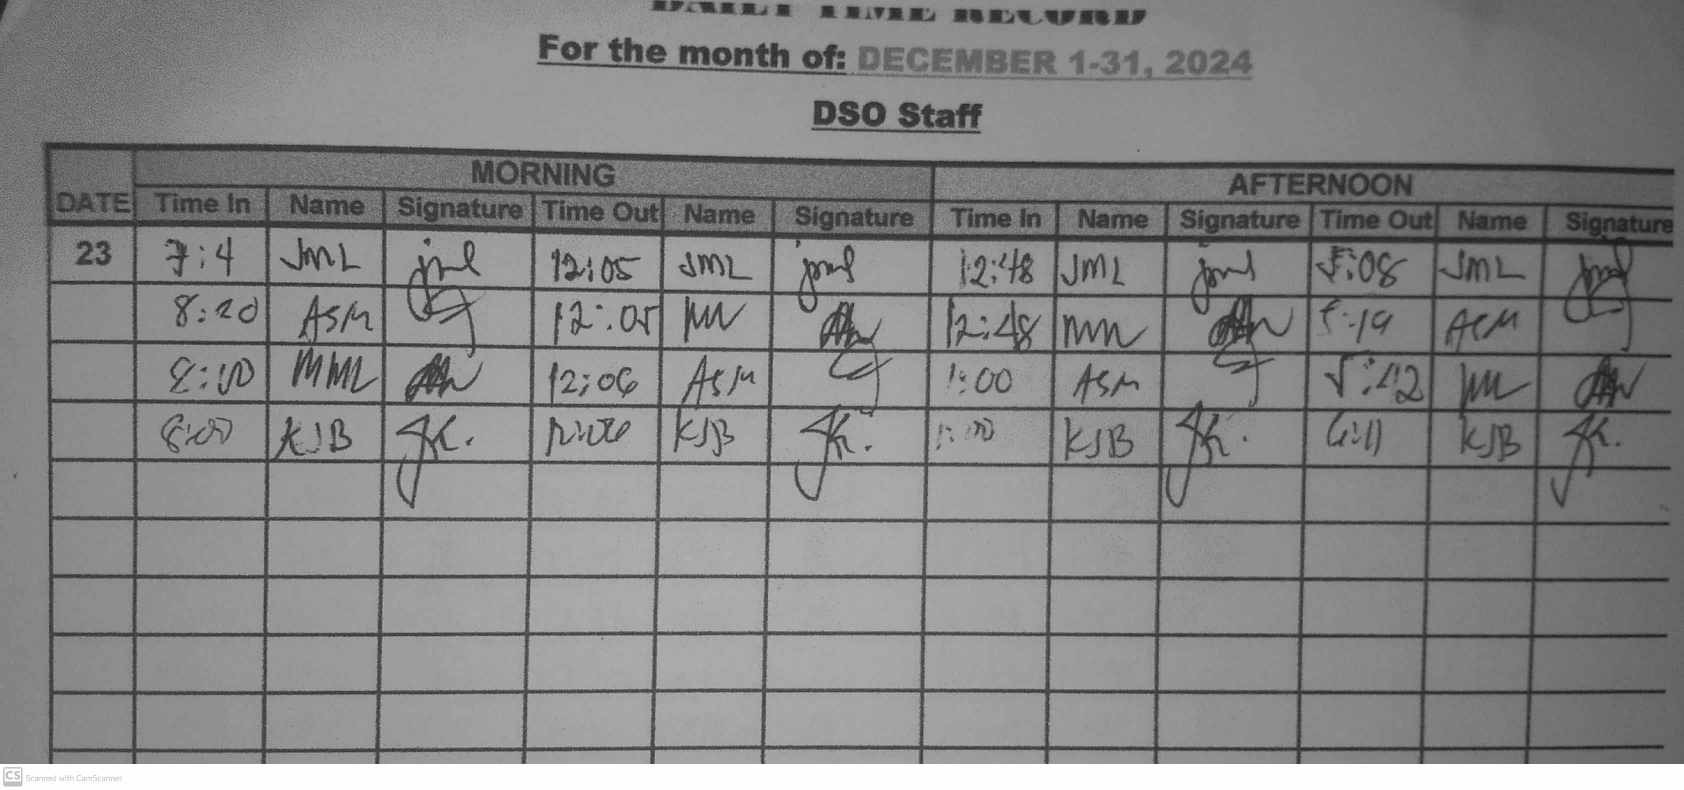 DAILY TIME RECORD
For the month of: DECEMBER 1-31, 2024
DSO Staff
MORNING AFTERNOON
DATE Time In Name Signature Time Out Name Signature Time In Name Signature Time Out Name Signature
23 7:4 JML jml 12:05 JML jml 12:48 JML jml 5:08 JML jml
8:20 ASM 12:05 12:48 5:19 ASM
8:00 MML 12:06 ASM 1:00 ASM 5:42
8:00 KJB 12:06 KJB 1:00 KJB 6:11 KJB
CS Scanned with CamScanner